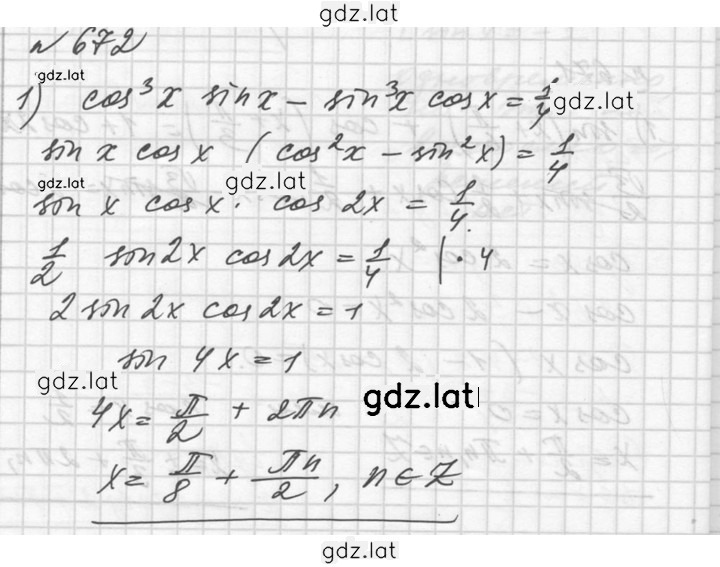 gdz.lat
№ 672
gdz.lat
1) cos³x sinx − sin³x cosx = 1/4
gdz.lat
sin x cos x (cos²x − sin²x) = 1/4
gdz.lat
gdz.lat
sin x cos x · cos 2x = 1/4.
1/2 sin2x cos2x = 1/4 | · 4
2 sin 2x cos2x = 1
sin 4x = 1
gdz.lat
gdz.lat
4x = π/2 + 2πn
x = π/8 + πn/2, n ∈ Z
gdz.lat